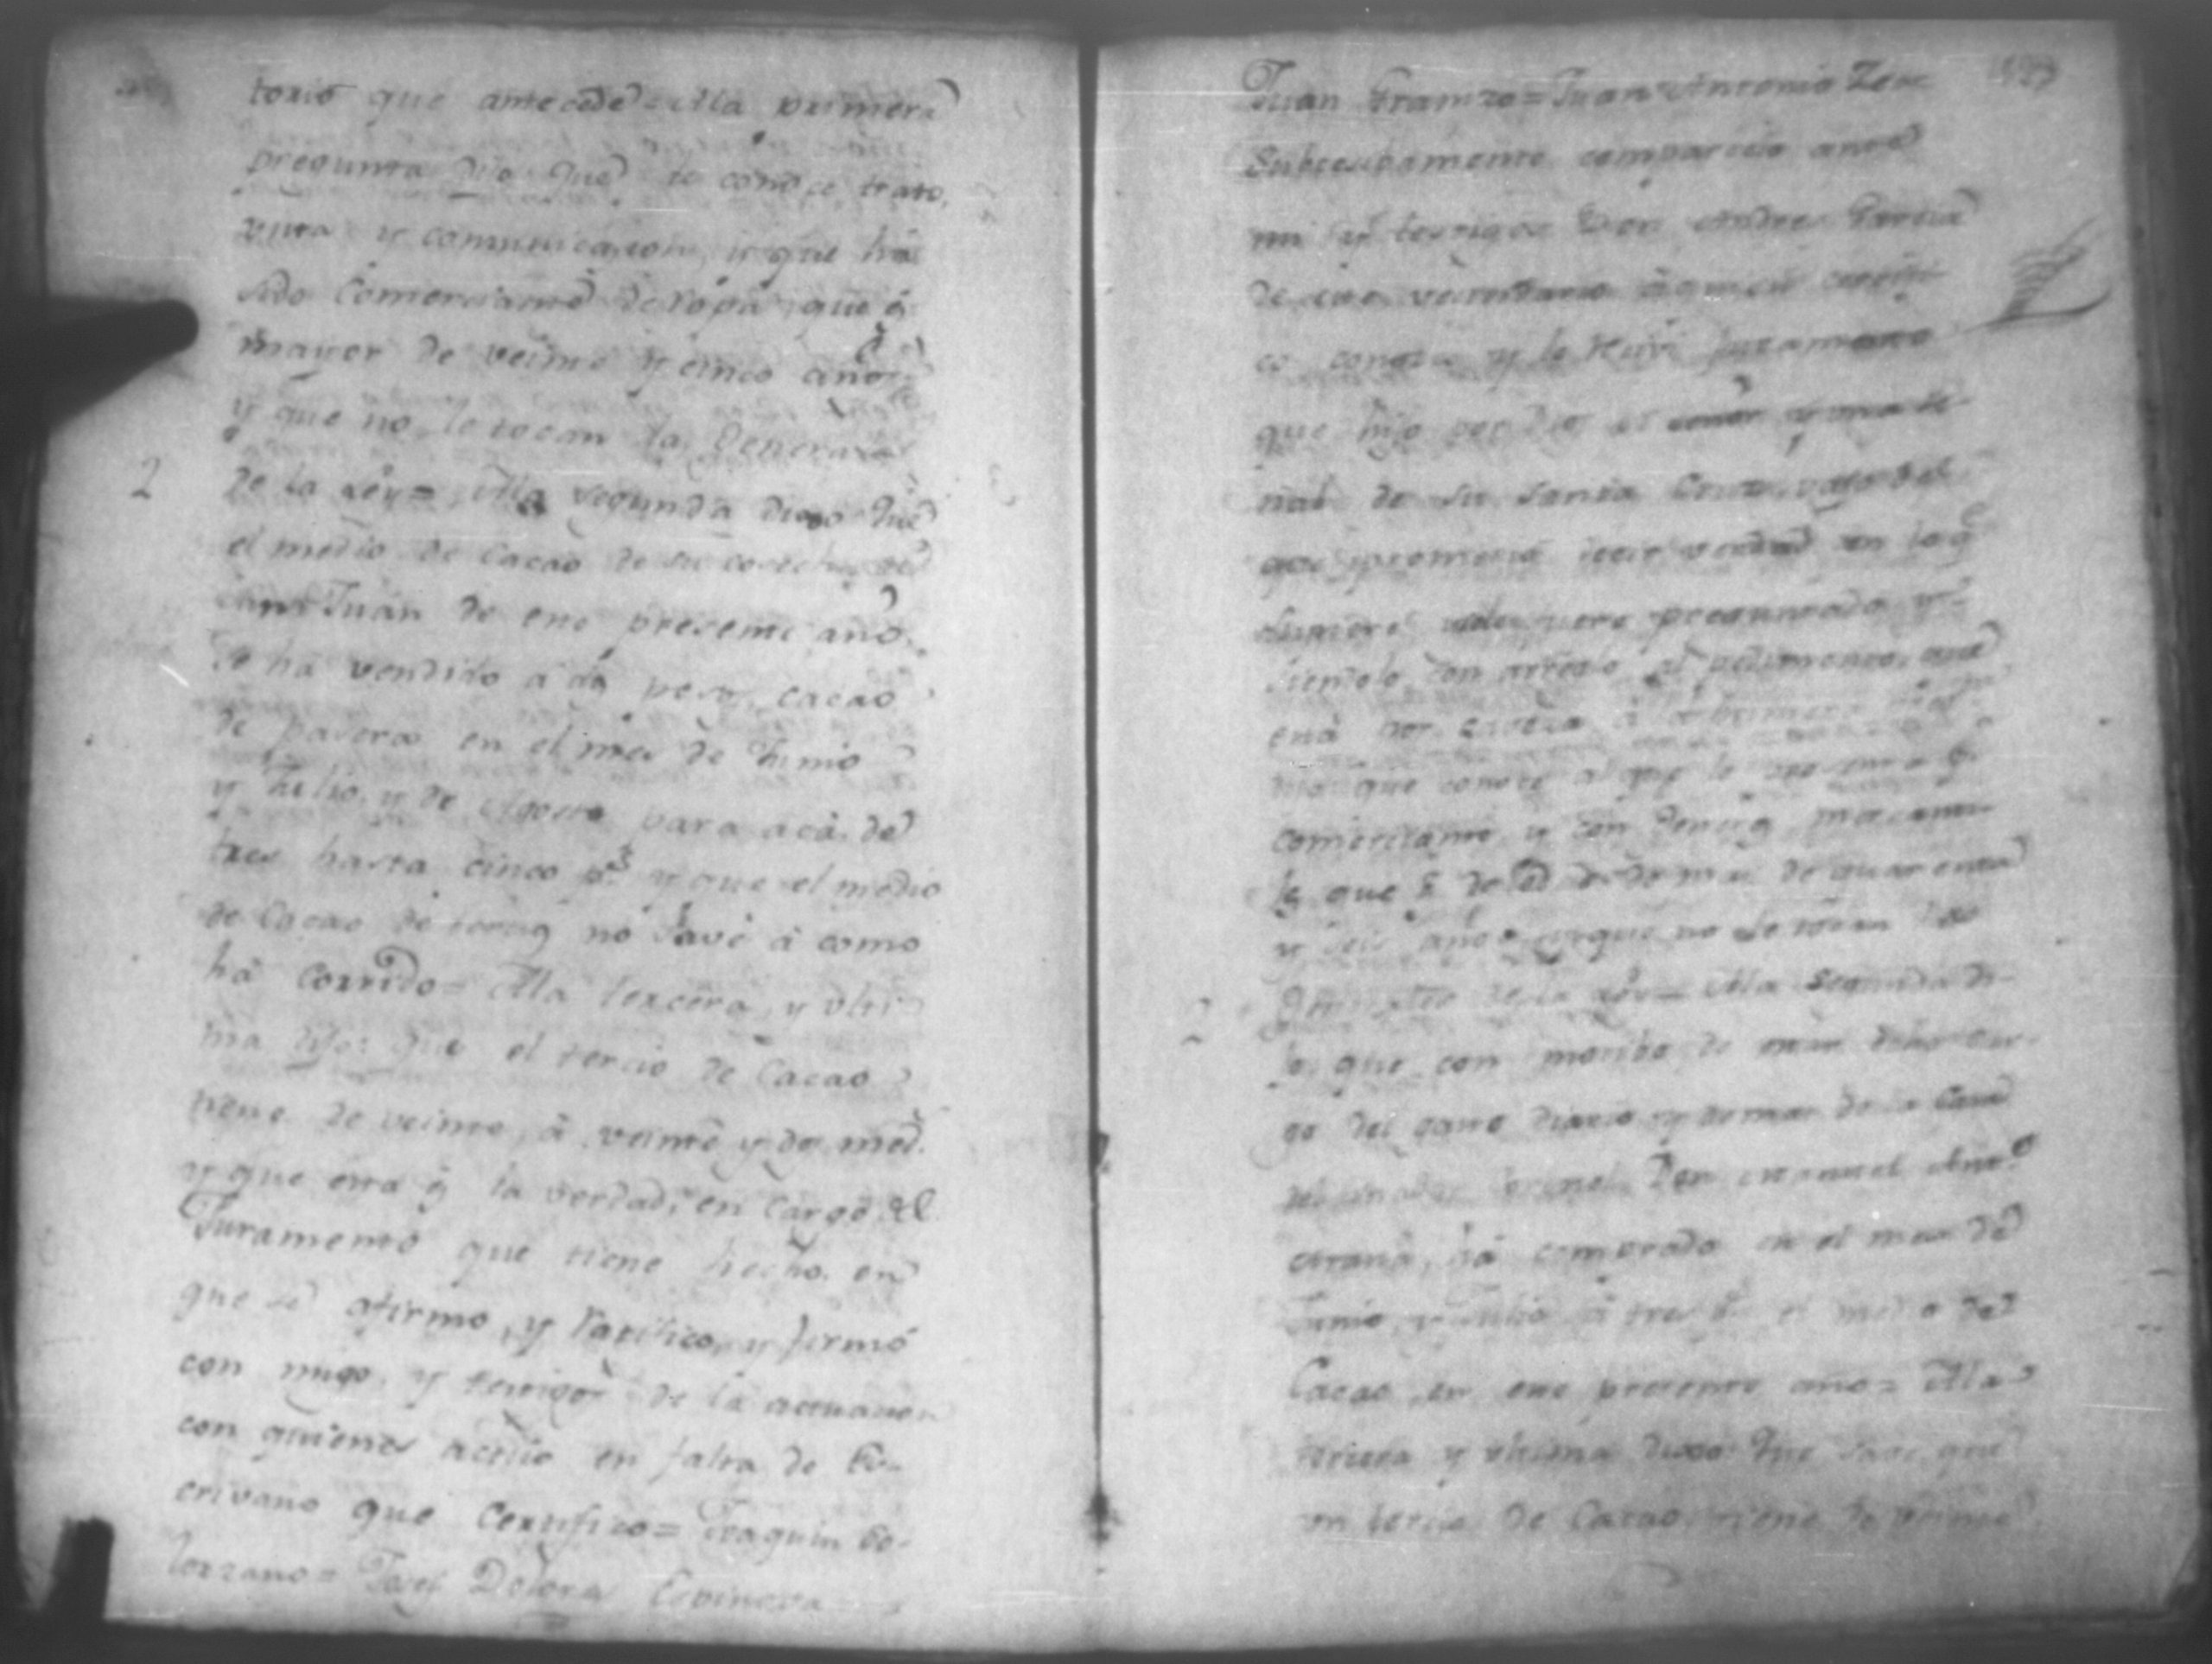 torio que antecede = Ala primera
pregunta dijo que le conoce, trato,
vista y comunicacion, y que há
sido Comerciante de ropa, que és
mayor de veinte y cinco años,
y que no le tocan la Generales
2 de la Ley = Ala segunda dixo Que
el medio de Cacao de su cosecha de
San Juan de este presente año
se ha vendido a dos pesos, cacao
de en el mes de Junio
y Julio, y de Agosto para acá de
tres hasta cinco ps. y que el medio
de Cacao de no save á como
há corrido = Ala tercera, y ulti
ma dijo: que el tercio de Cacao
tiene de veinte, á veinte y dos med.
y que esta es la verdad, en cargo del
Juramento que tiene hecho en
que se afirmo, y ratifico, y firmó
con migo, y testigos de la actuacion
con quienes actúo en falta de Es-
crivano que Certifico = Joaquin So-
lorzano = Josef Dolores Espinosa
Juan = Juan Antonio
Subcesibamente comparecio ante
mi y testigos Don Andres Garcia
de este vecindario á quien certifi
co conozco y le recivi juramento
que hijo por Dios el señor y una se
ñal de su Santa Cruz, vajo del
que prometió decir verdad en lo q
supiere y le fuere preguntado y
siendolo con arreglo al pedimento que
está por caveza á la primera
que conoce al que lo presenta
comerciante y con
le que es de edad de mas de quarenta
y seis años, y que no le tocan las
2 Generales de la Ley = Ala Segunda di-
jo, que con motibo de estar
go del gasto diario y demas de la Casa
del Coronel Don Manuel
ha comprado en el mes de
Junio, y Julio á tres ps el medio de
Cacao en este presente año = Ala
tercera y ultima dixo: Que save que
un tercio de Cacao tiene de veinte